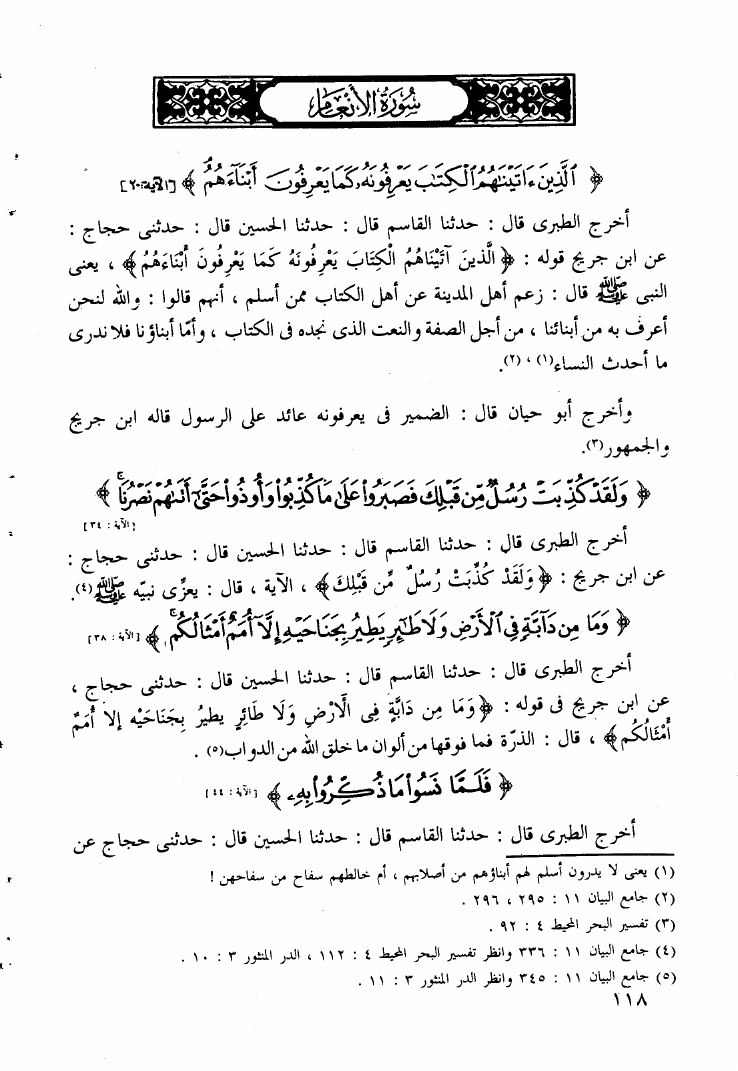 سُورَةُ الأَنْعَام
﴿ ٱلَّذِينَ ءَاتَيْنَٰهُمُ ٱلْكِتَٰبَ يَعْرِفُونَهُۥ كَمَا يَعْرِفُونَ أَبْنَآءَهُمُ ﴾ [الآية: ٢٠]
أخرج الطبرى قال : حدثنا القاسم قال : حدثنا الحسين قال : حدثنى حجاج :
عن ابن جريج قوله : ﴿ الَّذِينَ آتَيْنَاهُمُ الْكِتَابَ يَعْرِفُونَهُ كَمَا يَعْرِفُونَ أَبْنَاءَهُمُ ﴾ ، يعنى
النبى ﷺ قال : زعم أهل المدينة عن أهل الكتاب ممن أسلم ، أنهم قالوا : والله لنحن
أعرف به من أبنائنا ، من أجل الصفة والنعت الذى نجده فى الكتاب ، وأمّا أبناؤنا فلا ندرى
ما أحدث النساء(١) ، (٢).
وأخرج أبو حيان قال : الضمير فى يعرفونه عائد على الرسول قاله ابن جريج
والجمهور(٣).
﴿ وَلَقَدْ كُذِّبَتْ رُسُلٌ مِّن قَبْلِكَ فَصَبَرُوا۟ عَلَىٰ مَا كُذِّبُوا۟ وَأُوذُوا۟ حَتَّىٰٓ أَتَىٰهُمْ نَصْرُنَا ۚ ﴾
[الآية : ٣٤]
أخرج الطبرى قال : حدثنا القاسم قال : حدثنا الحسين قال : حدثنى حجاج :
عن ابن جريج : ﴿ وَلَقَدْ كُذِّبَتْ رُسُلٌ مِّن قَبْلِكَ ﴾ ، الآية ، قال : يعزِّى نبيّه ﷺ(٤).
﴿ وَمَا مِن دَآبَّةٍ فِى ٱلْأَرْضِ وَلَا طَٰٓئِرٍ يَطِيرُ بِجَنَاحَيْهِ إِلَّآ أُمَمٌ أَمْثَالُكُم ۚ ﴾ [الآية : ٣٨]
أخرج الطبرى قال : حدثنا القاسم قال : حدثنا الحسين قال : حدثنى حجاج ،
عن ابن جريج فى قوله : ﴿ وَمَا مِن دَابَّةٍ فِى الْأَرْضِ وَلَا طَائِرٍ يطيرُ بِجَنَاحَيْه إلا أُمَمٌ
أَمْثَالُكُم ﴾ ، قال : الذرّة فما فوقها من ألوان ما خلق الله من الدواب(٥) .
﴿ فَلَمَّا نَسُوا۟ مَا ذُكِّرُوا۟ بِهِۦ ﴾ [الآية : ٤٤]
أخرج الطبرى قال : حدثنا القاسم قال : حدثنا الحسين قال : حدثنى حجاج عن
(١) يعنى لا يدرون أسلم لهم أبناؤهم من أصلابهم ، أم خالطهم سفاح من سفاحهن !
(٢) جامع البيان ١١ : ٢٩٥ ، ٢٩٦ .
(٣) تفسير البحر المحيط ٤ : ٩٢ .
(٤) جامع البيان ١١ : ٣٣٦ وانظر تفسير البحر المحيط ٤ : ١١٢ ، الدر المنثور ٣ : ١٠ .
(٥) جامع البيان ١١ : ٣٤٥ وانظر الدر المنثور ٣ : ١١ .
١١٨